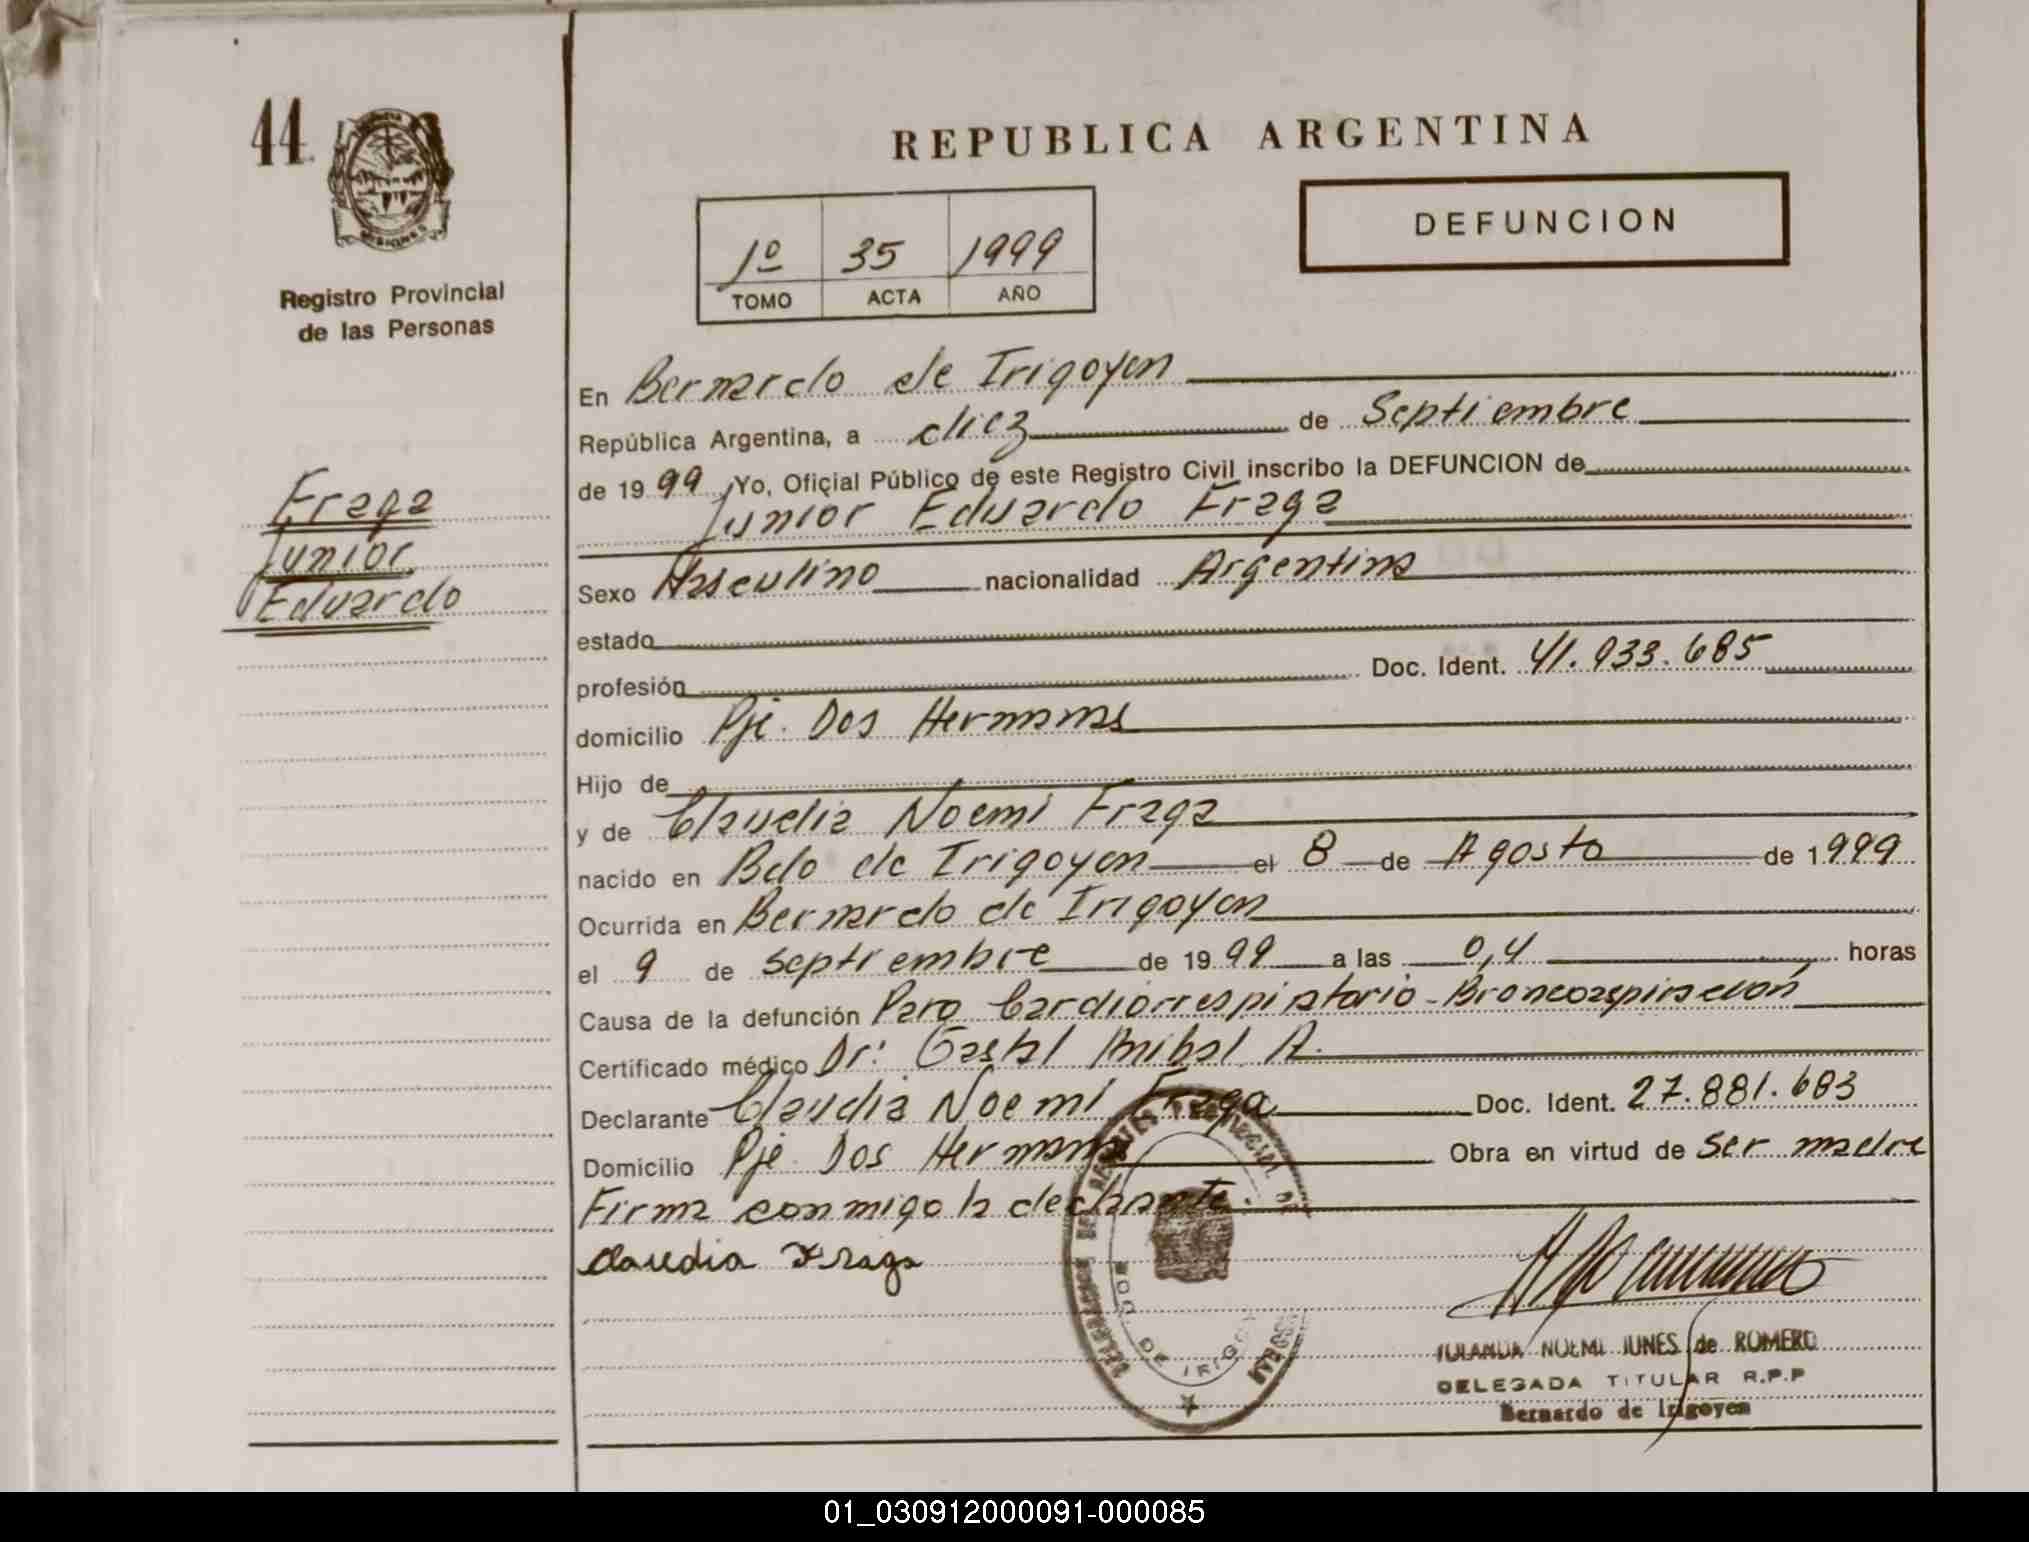 44
MISIONES
Registro Provincial
de las Personas
Fraga
Junior
Eduardo
REPUBLICA ARGENTINA
1º 35 1999
TOMO ACTA AÑO
DEFUNCION
En Bernardo de Irigoyen
República Argentina, a diez de Septiembre
de 1999 Yo, Oficial Público de este Registro Civil inscribo la DEFUNCION de
Junior Eduardo Fraga
Sexo Masculino nacionalidad Argentina
estado
profesión Doc. Ident. 41.933.685
domicilio Pje. Dos Hermanas
Hijo de
y de Claudia Noemi Fraga
nacido en Bdo de Irigoyen el 8 de Agosto de 1999
Ocurrida en Bernardo de Irigoyen
el 9 de septiembre de 1999 a las 0,4 horas
Causa de la defunción Paro Cardiorrespiratorio - Broncoaspiración
Certificado médico Dr: Gastal Anibal A.
Declarante Claudia Noemi Fraga Doc. Ident. 27.881.683
Domicilio Pje Dos Hermanas Obra en virtud de ser madre
Firma conmigo la declarante.
Claudia Fraga
BDO. DE IRIGOYEN
NOEMI JUNES de ROMERO
DELEGADA TITULAR R.P.P
Bernardo de Irigoyen
01_030912000091-000085